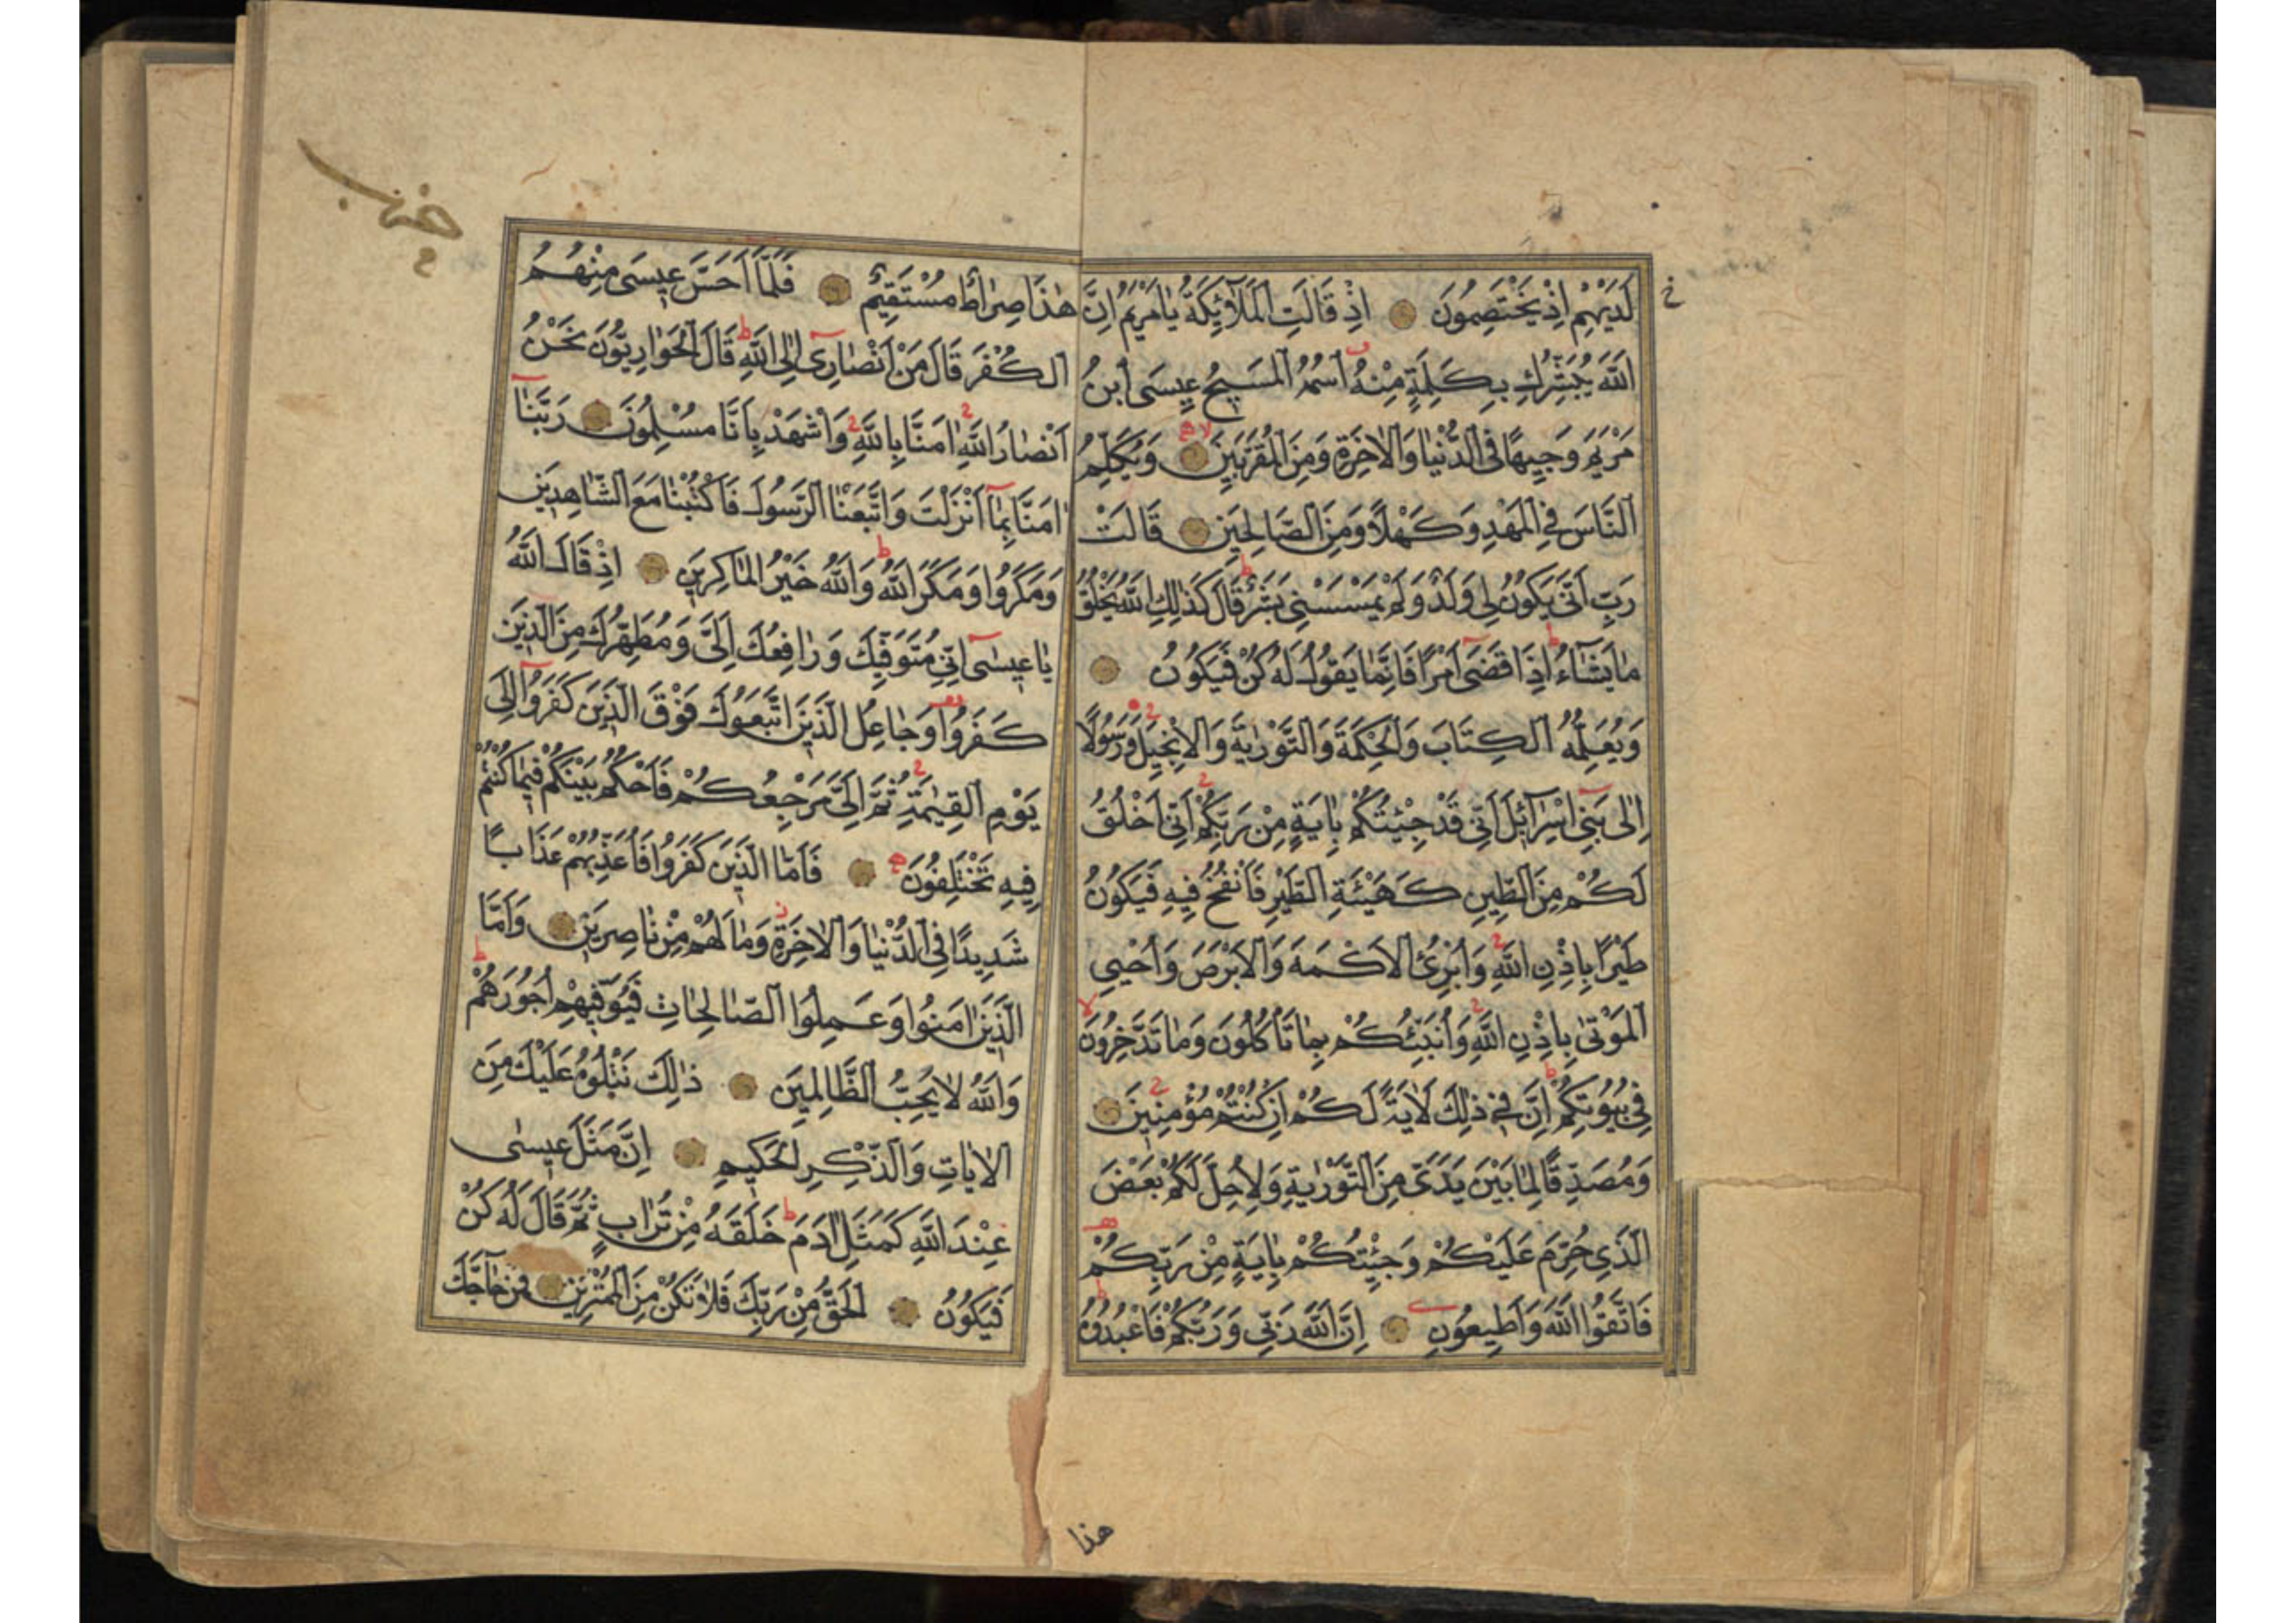 لَدَيْهِمْ اِذْ يَخْتَصِمُونَ اِذْ قَالَتِ الْمَلٰٓئِكَةُ يَا مَرْيَمُ اِنَّ
اللّٰهَ يُبَشِّرُكِ بِكَلِمَةٍ مِنْهُ اسْمُهُ الْمَسِيحُ عِيسَى ابْنُ
مَرْيَمَ وَجِيهًا فِي الدُّنْيَا وَالْاٰخِرَةِ وَمِنَ الْمُقَرَّبِينَ وَيُكَلِّمُ
النَّاسَ فِي الْمَهْدِ وَكَهْلًا وَمِنَ الصَّالِحِينَ قَالَتْ
رَبِّ اَنّٰى يَكُونُ لِي وَلَدٌ وَلَمْ يَمْسَسْنِي بَشَرٌ قَالَ كَذٰلِكِ اللّٰهُ يَخْلُقُ
مَا يَشَٓاءُ اِذَا قَضٰى اَمْرًا فَاِنَّمَا يَقُولُ لَهُ كُنْ فَيَكُونُ
وَيُعَلِّمُهُ الْكِتَابَ وَالْحِكْمَةَ وَالتَّوْرٰيةَ وَالْاِنْجِيلَ وَرَسُولًا
اِلٰى بَنِي اِسْرَٓائِلَ اَنِّي قَدْ جِئْتُكُمْ بِاٰيَةٍ مِنْ رَبِّكُمْ اَنِّي اَخْلُقُ
لَكُمْ مِنَ الطِّينِ كَهَيْئَةِ الطَّيْرِ فَاَنْفُخُ فِيهِ فَيَكُونُ
طَيْرًا بِاِذْنِ اللّٰهِ وَاُبْرِئُ الْاَكْمَهَ وَالْاَبْرَصَ وَاُحْيِي
الْمَوْتٰى بِاِذْنِ اللّٰهِ وَاُنَبِّئُكُمْ بِمَا تَأْكُلُونَ وَمَا تَدَّخِرُونَ
فِي بُيُوتِكُمْ اِنَّ فِي ذٰلِكَ لَاٰيَةً لَكُمْ اِنْ كُنْتُمْ مُؤْمِنِينَ
وَمُصَدِّقًا لِمَا بَيْنَ يَدَيَّ مِنَ التَّوْرٰيةِ وَلِاُحِلَّ لَكُمْ بَعْضَ
الَّذِي حُرِّمَ عَلَيْكُمْ وَجِئْتُكُمْ بِاٰيَةٍ مِنْ رَبِّكُمْ
فَاتَّقُوا اللّٰهَ وَاَطِيعُونِ اِنَّ اللّٰهَ رَبِّي وَرَبُّكُمْ فَاعْبُدُوهُ
هذا
هٰذَا صِرَاطٌ مُسْتَقِيمٌ فَلَمَّا اَحَسَّ عِيسَى مِنْهُمُ
الْكُفْرَ قَالَ مَنْ اَنْصَارِي اِلَى اللّٰهِ قَالَ الْحَوَارِيُّونَ نَحْنُ
اَنْصَارُ اللّٰهِ اٰمَنَّا بِاللّٰهِ وَاشْهَدْ بِاَنَّا مُسْلِمُونَ رَبَّنَا
اٰمَنَّا بِمَا اَنْزَلْتَ وَاتَّبَعْنَا الرَّسُولَ فَاكْتُبْنَا مَعَ الشَّاهِدِينَ
وَمَكَرُوا وَمَكَرَ اللّٰهُ وَاللّٰهُ خَيْرُ الْمَاكِرِينَ اِذْ قَالَ اللّٰهُ
يَا عِيسٰى اِنِّي مُتَوَفِّيكَ وَرَافِعُكَ اِلَيَّ وَمُطَهِّرُكَ مِنَ الَّذِينَ
كَفَرُوا وَجَاعِلُ الَّذِينَ اتَّبَعُوكَ فَوْقَ الَّذِينَ كَفَرُوا اِلٰى
يَوْمِ الْقِيٰمَةِ ثُمَّ اِلَيَّ مَرْجِعُكُمْ فَاَحْكُمُ بَيْنَكُمْ فِيمَا كُنْتُمْ
فِيهِ تَخْتَلِفُونَ فَاَمَّا الَّذِينَ كَفَرُوا فَاُعَذِّبُهُمْ عَذَابًا
شَدِيدًا فِي الدُّنْيَا وَالْاٰخِرَةِ وَمَا لَهُمْ مِنْ نَاصِرِينَ وَاَمَّا
الَّذِينَ اٰمَنُوا وَعَمِلُوا الصَّالِحَاتِ فَيُوَفِّيهِمْ اُجُورَهُمْ
وَاللّٰهُ لَا يُحِبُّ الظَّالِمِينَ ذٰلِكَ نَتْلُوهُ عَلَيْكَ مِنَ
الْاٰيَاتِ وَالذِّكْرِ الْحَكِيمِ اِنَّ مَثَلَ عِيسٰى
عِنْدَ اللّٰهِ كَمَثَلِ اٰدَمَ خَلَقَهُ مِنْ تُرَابٍ ثُمَّ قَالَ لَهُ كُنْ
فَيَكُونُ اَلْحَقُّ مِنْ رَبِّكَ فَلَا تَكُنْ مِنَ الْمُمْتَرِينَ فَمَنْ حَٓاجَّكَ